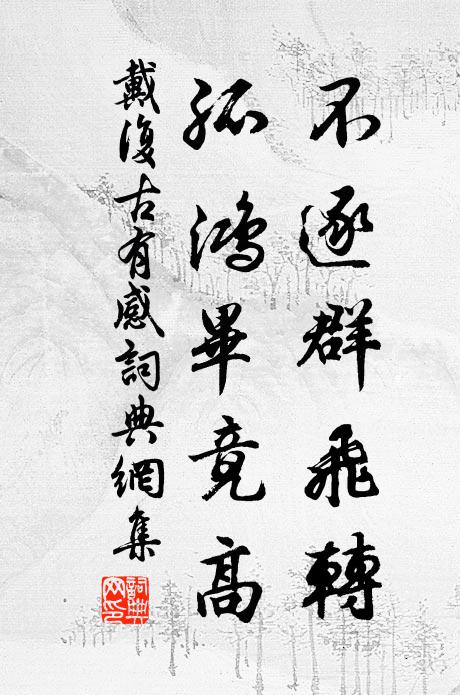 不逐群飛轉
孤鴻畢竟高
戴復古有感詞典網集
詞典網印